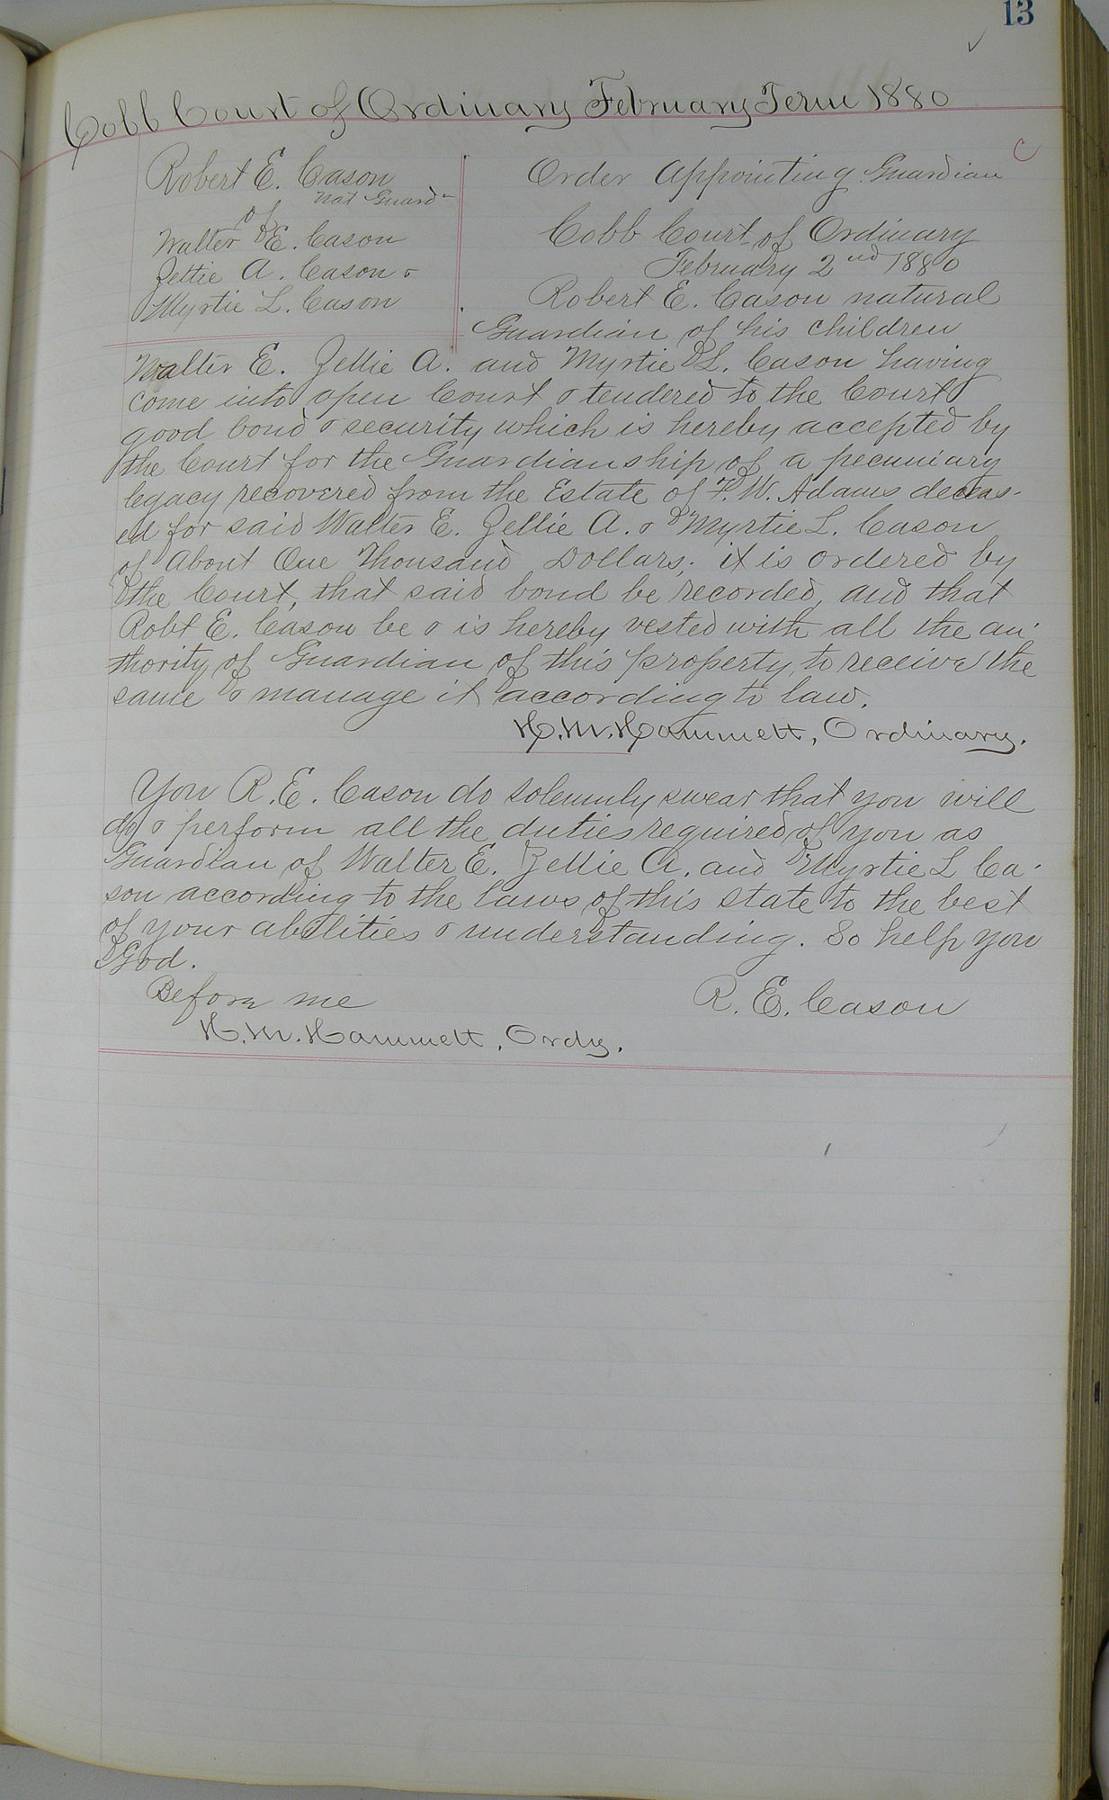 13
Cobb Court of Ordinary February Term 1880
C
Robert E. Cason
Nat Guard-
of
Walter E. Cason
Zettie A. Cason &
Myrtie L. Cason
Order Appointing Guardian
Cobb Court of Ordinary
February 2nd 1880
Robert E. Cason natural
Guardian of his children
Walter E. Zellie A. and Myrtie L. Cason having
come into open Court & tendered to the Court
good bond & security which is hereby accepted by
the Court for the Guardianship of a pecuniary
legacy recovered from the Estate of F. W. Adams deceas-
ed for said Walter E. Zellie A. & Myrtie L. Cason
of About One Thousand Dollars; it is ordered by
the Court, that said bond be recorded, and that
Robt E. Cason be & is hereby vested with all the au-
thority of Guardian of this property, to receive the
same & manage it according to law.
H. M. Hammett, Ordinary.
You R. E. Cason do solemnly swear that you will
do & perform all the duties required of you as
Guardian of Walter E. Zellie A. and Myrtie L Ca-
son according to the laws of this state to the best
of your abilities & understanding. So help you
God.
Before me
R. E. Cason
H. M. Hammett, Ordy.